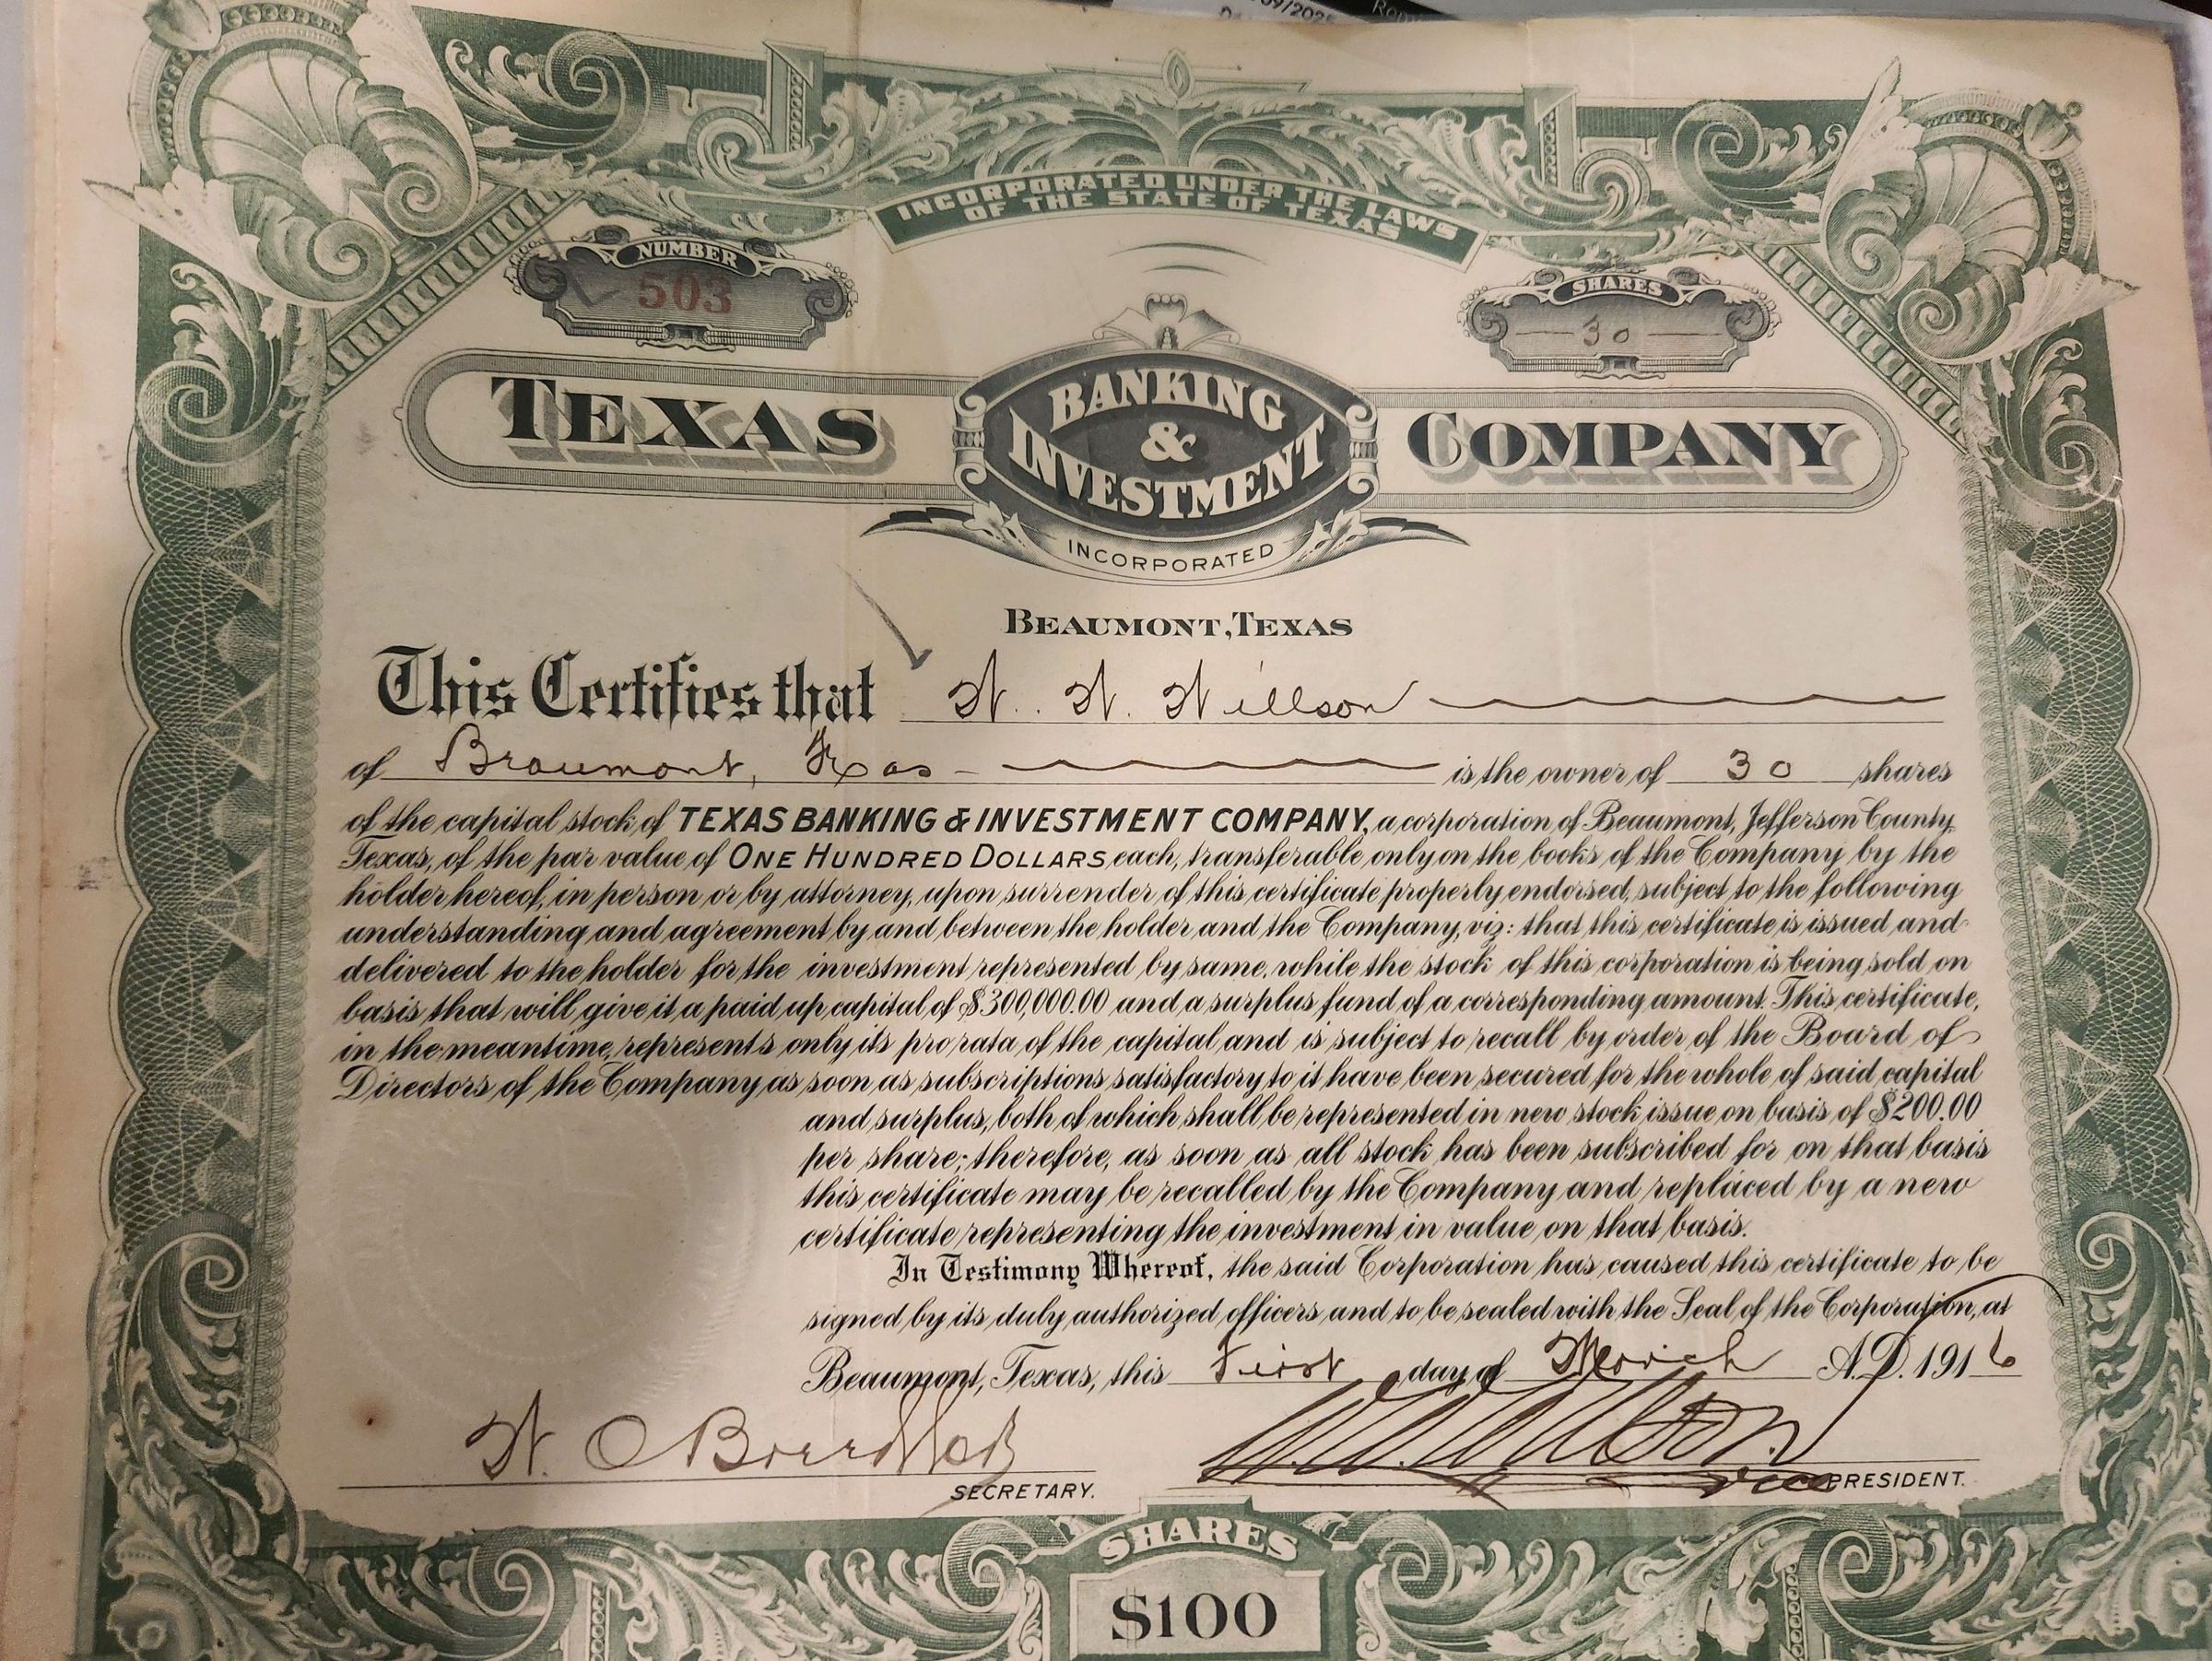 09/202
INCORPORATED UNDER THE LAWS
OF THE STATE OF TEXAS
NUMBER
503
SHARES
30
TEXAS BANKING & INVESTMENT COMPANY
INCORPORATED
BEAUMONT, TEXAS
This Certifies that W. W. Willson
of Beaumont, Texas is the owner of 30 shares
of the capital stock of TEXAS BANKING & INVESTMENT COMPANY, a corporation of Beaumont, Jefferson County,
Texas, of the par value of ONE HUNDRED DOLLARS each, transferable only on the books of the Company by the
holder hereof, in person or by attorney, upon surrender of this certificate properly endorsed, subject to the following
understanding and agreement by and between the holder and the Company, viz: that this certificate is issued and
delivered to the holder for the investment represented by same, while the stock of this corporation is being sold on
basis that will give it a paid up capital of $300,000.00 and a surplus fund of a corresponding amount. This certificate,
in the meantime, represents only its pro rata of the capital and is subject to recall by order of the Board of
Directors of the Company as soon as subscriptions satisfactory to it have been secured for the whole of said capital
and surplus, both of which shall be represented in new stock issue on basis of $200.00
per share; therefore, as soon as all stock has been subscribed for on that basis
this certificate may be recalled by the Company and replaced by a new
certificate representing the investment in value on that basis.
In Testimony Whereof, the said Corporation has caused this certificate to be
signed by its duly authorized officers and to be sealed with the Seal of the Corporation, at
Beaumont, Texas, this First day of March A.D. 1916
SECRETARY.
Vice PRESIDENT.
SHARES
$100